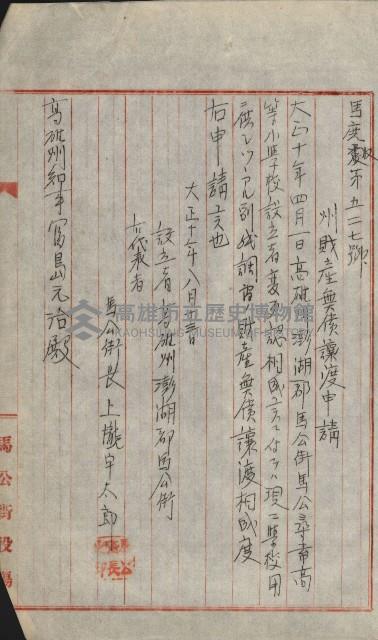 馬庶第五二七號
州財產無償讓渡申請
大正十年四月一日高雄州澎湖郡馬公街馬公尋常高
等小學校設立者變更認相成候ニ付テハ現ニ學校用
ニ供シツヽアル別紙調書財產無償讓渡相成度
右申請候也
大正十年八月 日
設立者 高雄州澎湖郡馬公街
右代表者
馬公街長 上瀧宇太郎
高雄州知事富島元治殿
馬公街役場
高雄市立歷史博物館
KAOHSIUNG MUSEUM OF HISTORY